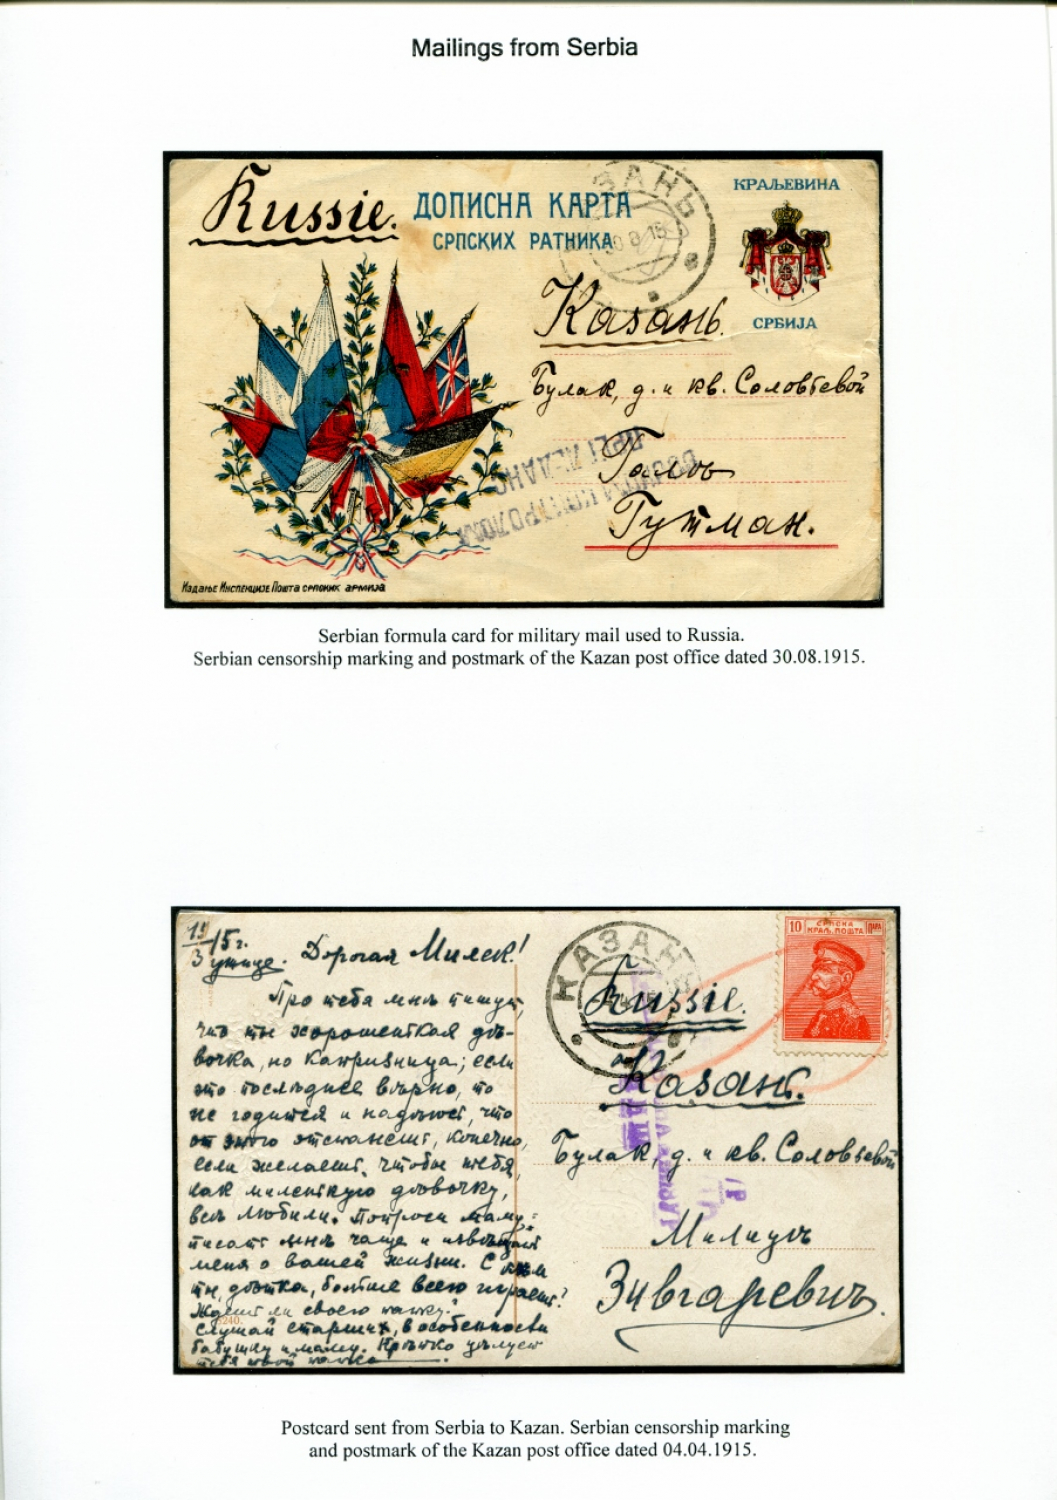 Mailings from Serbia
Russie.
ДОПИСНА КАРТА
СРПСКИХ РАТНИКА
КРАЉЕВИНА
СРБИЈА
ЗАНЬ
30 8 15
Казань.
Булак, д. и кв. Соловьевой
Гутман.
Издање Инспекције Пошта српских армија
Serbian formula card for military mail used to Russia.
Serbian censorship marking and postmark of the Kazan post office dated 30.08.1915.
15 г.
Дорогая Милек!
Про тебя мнѣ пишут,
что ты хорошенькая дѣ-
вочка, но капризница; если
это послѣднее вѣрно, то
не годится и надѣюсь, что
от этого отстанешь, конечно,
если желаешь, чтобы тебя,
как миленькую дѣвочку,
всѣ любили. Попроси маму
писать мнѣ чаще и
меня о вашей жизни. С кѣм
ты, дѣтка, больше всего играешь?
Ждешь ли своего папку?
слушай старших, в особенности
бабушку и маму. Крѣпко цѣлует
тебя твой папка
5240.
КАЗАНЬ
10
СРПСКА
КРАЉ. ПОШТА
ПАРА
Russie.
Казань.
Булак, д. и кв. Соловьевой
Милицѣ
Зивгаревичъ.
Postcard sent from Serbia to Kazan. Serbian censorship marking
and postmark of the Kazan post office dated 04.04.1915.